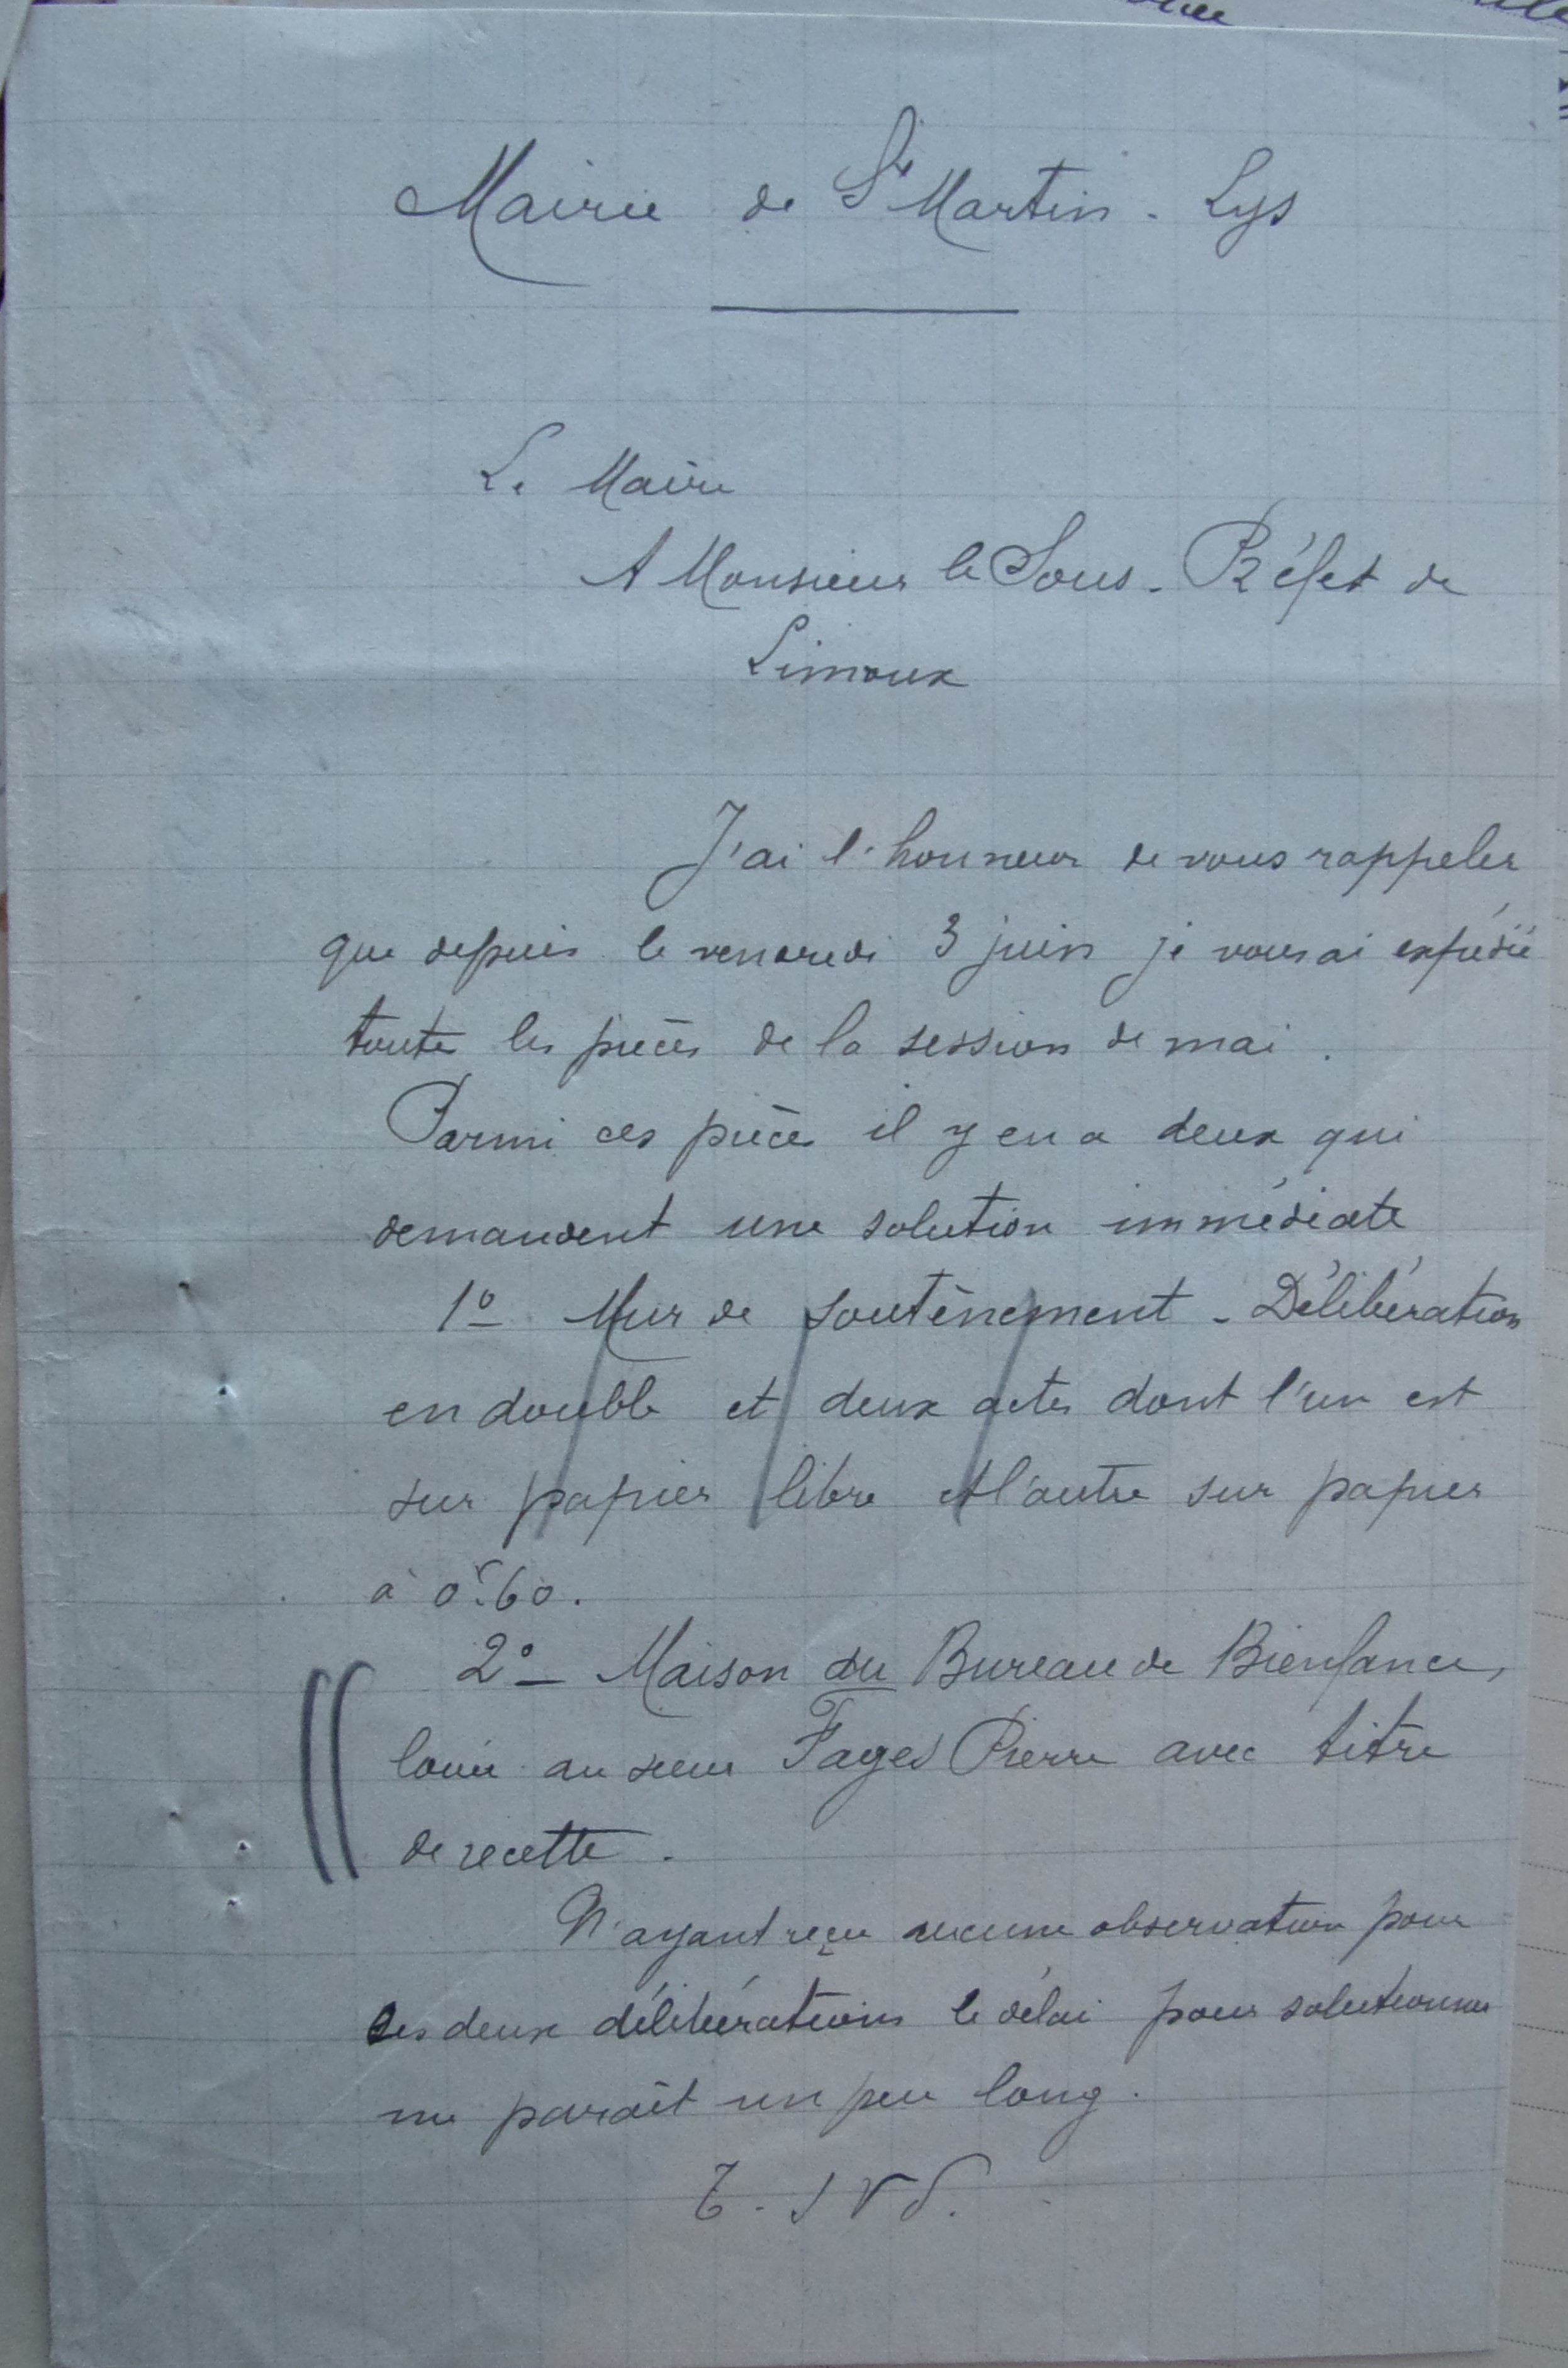 Mairie de St Martin-Lys
Le Maire
A Monsieur le Sous-Préfet de
Limoux
J'ai l'honneur de vous rappeler
que depuis le vendredi 3 juin je vous ai expédié
toutes les pièces de la session de mai.
Parmi ces pièces il y en a deux qui
demandent une solution immédiate
1º Mur de soutènement - Délibération
en double et deux actes dont l'un est
sur papier libre et l'autre sur papier
à 0f.60.
2º - Maison du Bureau de Bienfance,
louée au sieur Fages Pierre avec titre
de recette.
N'ayant reçu aucune observation pour
les deux délibérations le délai pour solutionner
me paraît un peu long.
T. S V P.